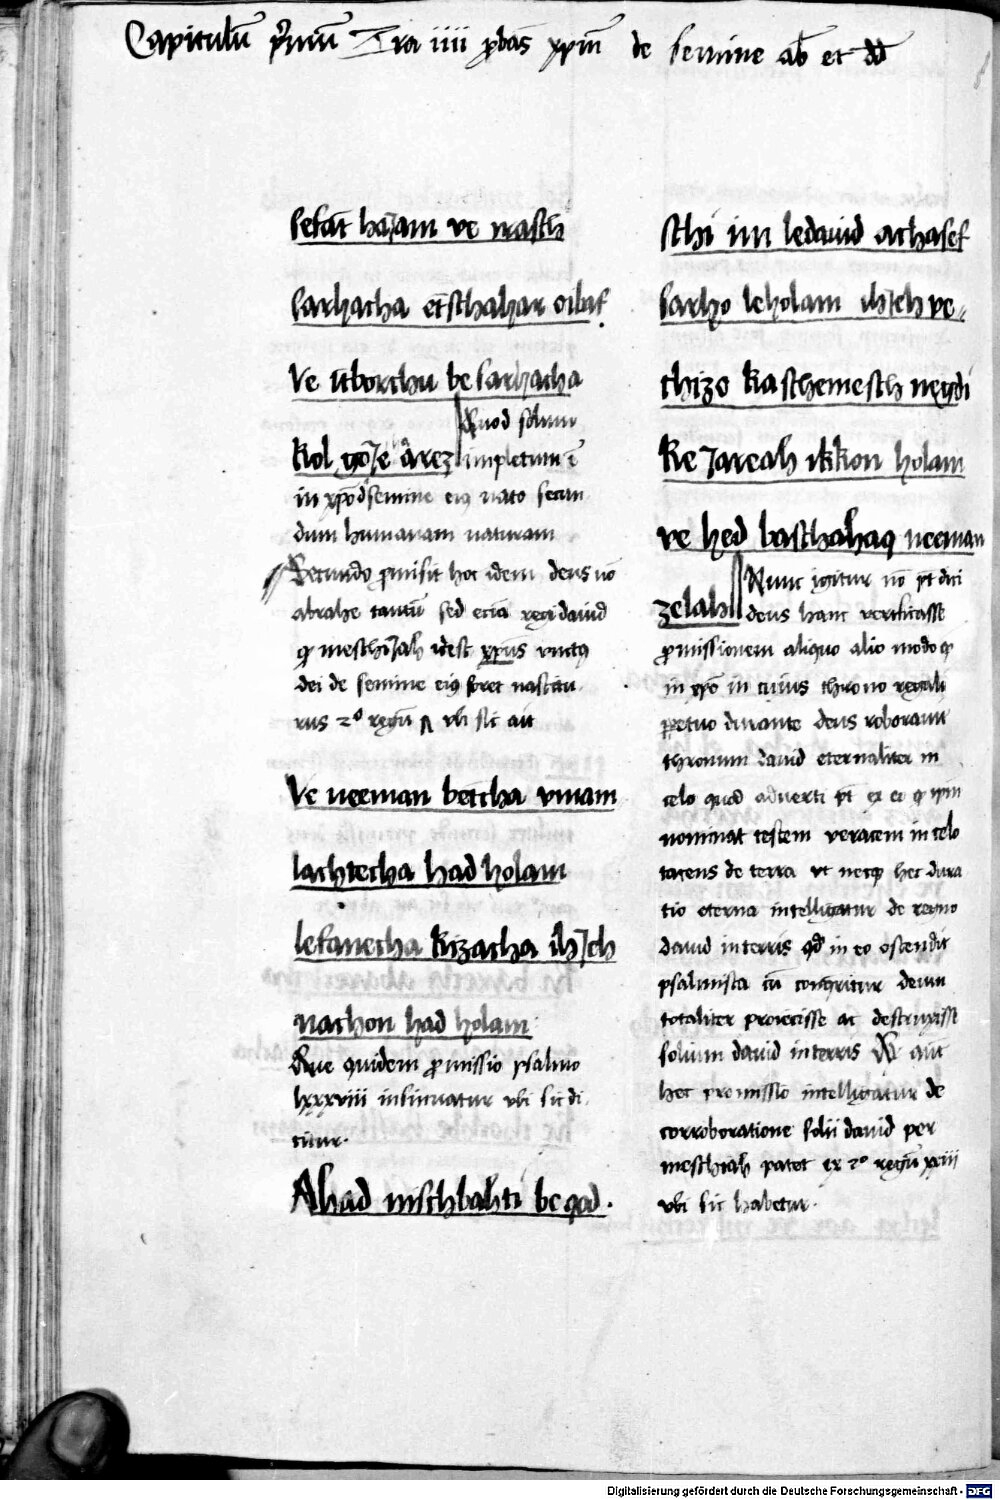 Capitulū p̄mū Tra iiii ꝓbās xpm̄ de semine ab̄ et dd̄
sefāt haȷam ve
sarhacha etschahar oibaf
ve ītborchu besarhacha
kol goȷe ārez quod solum
impletum ē
in xpō dsemine eiꝰ nato secun
dum humanam naturam
Secundo ꝓmisit hoc idem deus nō
abrahe tantū sed eciā regi dauid
ꝙ meschiȷah idest xpūs vnctꝰ
dei de semine eiꝰ foret nascitu
rus 2º regū ᴧ vbi sic ait
Ve neeman betcha vmam
lachtecha had holam
lefanecha kizacha ihȷeh
nachon had holam
Que quidem ꝓmissio psalmo
lxxxviii insinuatur vbi sic di
citur.
Ahad nischbahti begod.
schi im ledauid achasef
sarho leholam ihȷeh ve
chizo kaschemesch negdi
ke ȷareah ikkon holam
ve hed baschahaq neeman
zelah Nunc igitur nō pt dici
deus hanc verificasse
ꝓmissionem aliquo alio modo ꝙ
in xpō in cuius throno regali
ꝑpetuo durante deus roborauit
thronum dauid eternaliter in
celo quod aduerti pt ex eo ꝙ ipm̄
nominat testem veracem in celo
tacens de terra vt necꝫ hec dura
tio eterna intelligatur de regno
dauid in terris qd̄ in eo ostendit
psalmista cū conqueritur deum
totaliter proiecisse ac destruxisse
solium dauid in terris Qꝫ aut̄
hec promissio intelligatur de
corroboratione solii dauid per
meschiah patet ex 2º regū xxiii
vbi sic habetur.
Digitalisierung gefördert durch die Deutsche Forschungsgemeinschaft - DFG